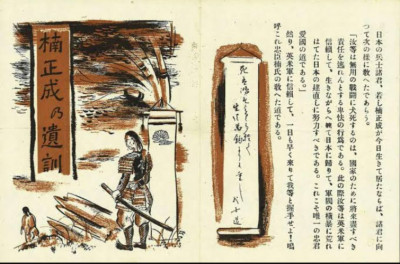 楠正成乃遺訓
日本の兵士諸君、若し楠正成が今日生きて居たならば、諸君に向
つて次の樣に教へたであらう。
「汝等は無用の戰鬪に犬死するのは、國家のために將來盡すべき
責任を逃れんとする卑怯の行爲である。此の際汝等は英米軍に
信賴して、生きながらへ軈て日本に歸りて、軍閥の橫暴に荒れ
はてた日本の建直しに努力すべきである。これこそ唯一の忠君
愛國の道である。」
から
始り、英米軍に信賴して、一日も早く來りて我等と握手せよ！嗚
呼これ忠臣楠氏の教へた道である。